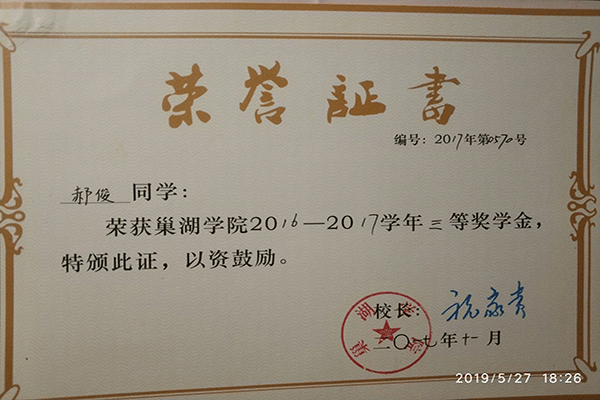 荣誉证书
编号：2017年第0570号
郝俊 同学：
荣获巢湖学院2016—2017学年三等奖学金，
特颁此证，以资鼓励。
校长：祝家贵
二〇一七年十一月
2019/5/27 18:26